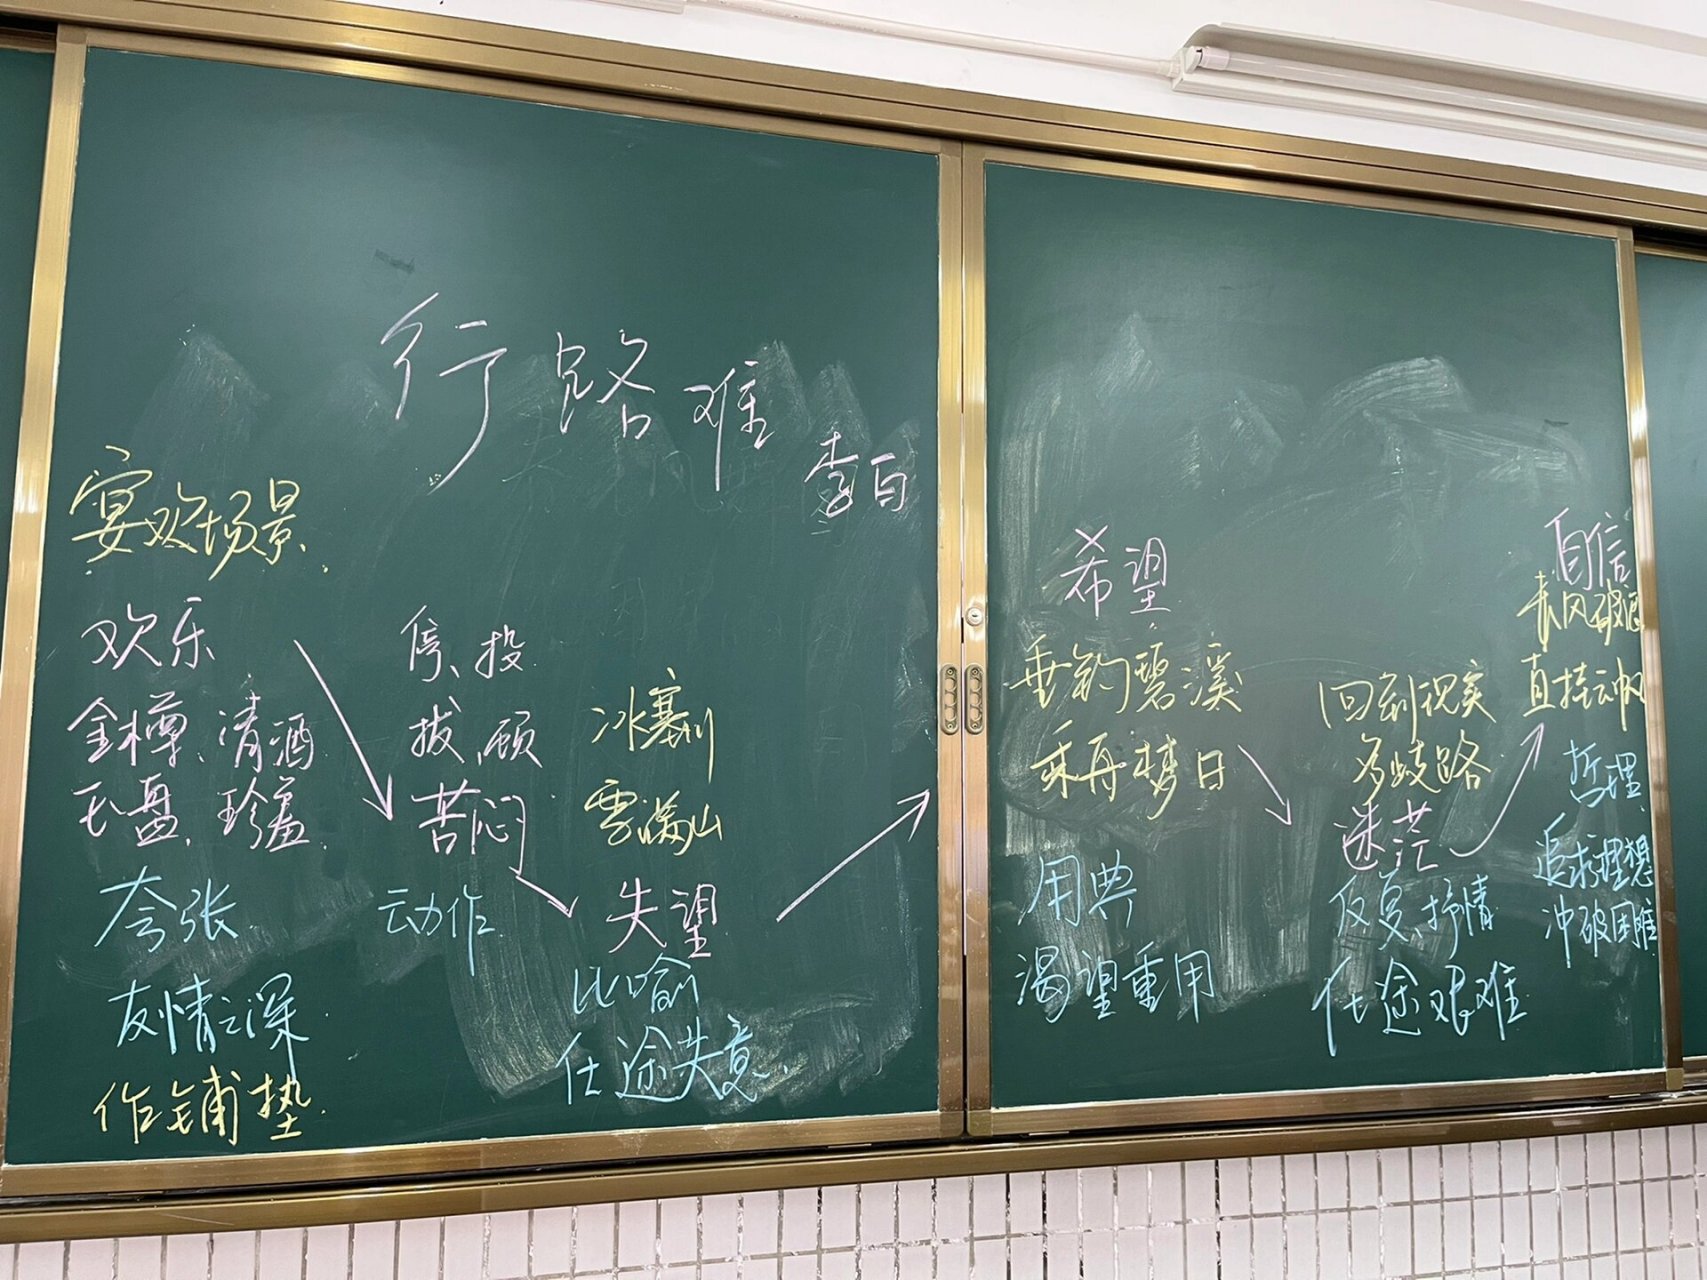 行路难
李白
宴欢场景
欢乐
金樽、清酒
玉盘、珍羞
夸张
友情之深
作铺垫
停、投
拔、顾
苦闷
动作
冰塞川
雪满山
失望
比喻
仕途失意
希望
垂钓碧溪
乘舟梦日
用典
渴望重用
回到现实
多歧路
迷茫
反复、抒情
仕途艰难
自信
长风破浪
直挂云帆
哲理
追求理想
冲破困难